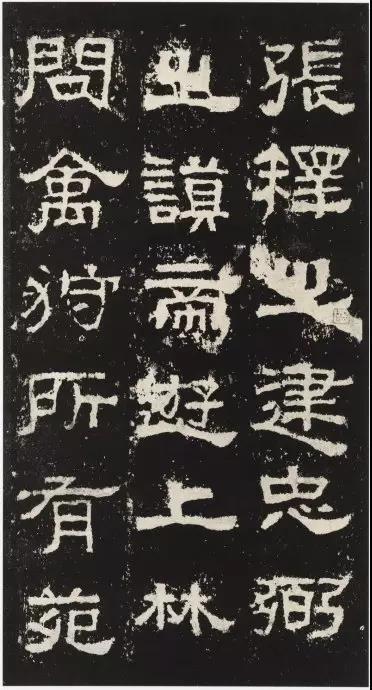 張釋之建忠弼
之謨帝遊上林
問禽狩所有苑